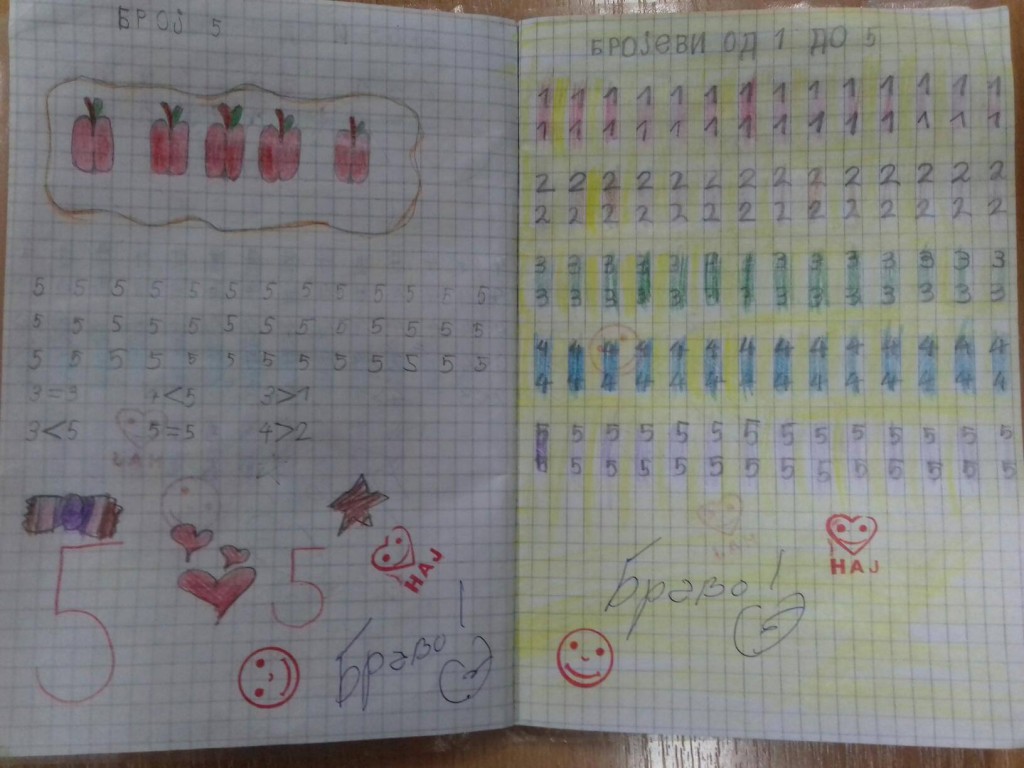 БРОЈ 5
5 5 5 5 5 5 5 5 5 5 5 5 5
5 5 5 5 5 5 5 5 5 5 5 5 5
5 5 5 5 5 5 5 5 5 5 5 5 5
3=3 4<5 3>1
3<5 5=5 4>2
5 5
НАЈ
Браво!
БРОЈЕВИ ОД 1 ДО 5
1 1 1 1 1 1 1 1 1 1 1 1 1 1
1 1 1 1 1 1 1 1 1 1 1 1 1 1
2 2 2 2 2 2 2 2 2 2 2 2 2 2
2 2 2 2 2 2 2 2 2 2 2 2 2 2
3 3 3 3 3 3 3 3 3 3 3 3 3 3
3 3 3 3 3 3 3 3 3 3 3 3 3 3
4 4 4 4 4 4 4 4 4 4 4 4 4 4
4 4 4 4 4 4 4 4 4 4 4 4 4 4
5 5 5 5 5 5 5 5 5 5 5 5 5 5
5 5 5 5 5 5 5 5 5 5 5 5 5 5
НАЈ
Браво!